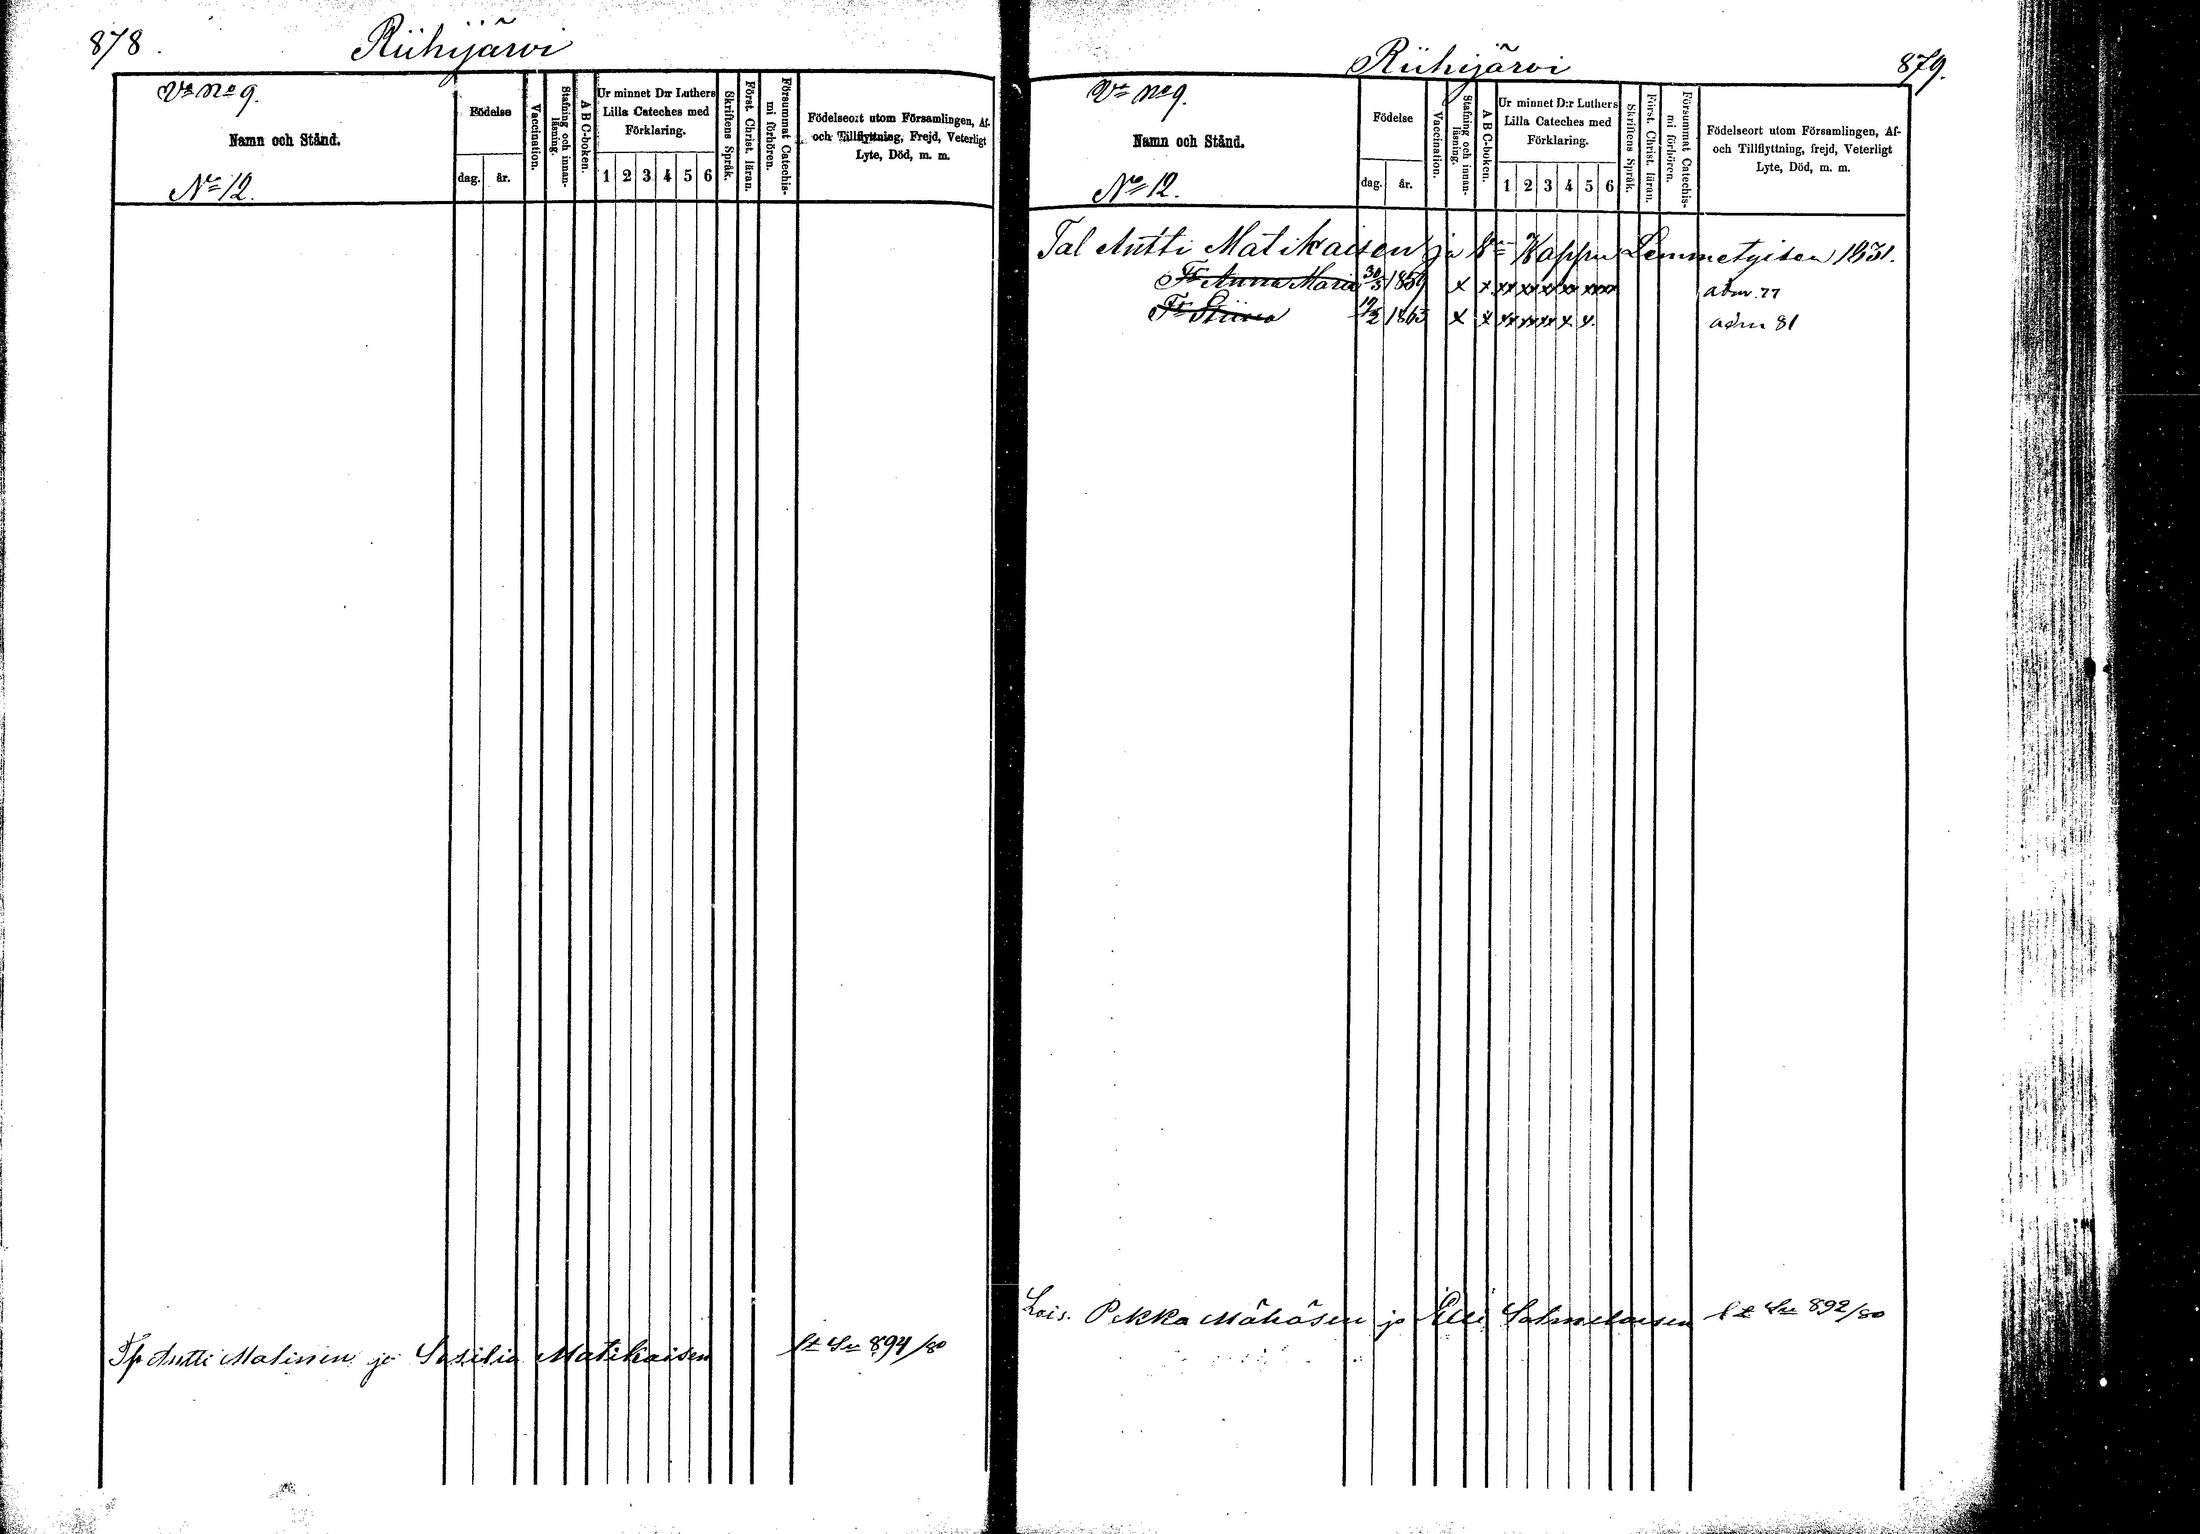 878.
Riihijärvi
Va No 9.
Namn och Stånd.
No 12.
Födelse
dag.
år.
Vaccination.
Stafning och innan-
läsning.
A B C-boken.
Ur minnet D:r Luthers
Lilla Cateches med
Förklaring.
1 2 3 4 5 6
Skriftens Språk.
Först. Christ. läran.
Försummat Catechis-
mi förhören.
Födelseort utom Församlingen, Af-
och Tillflyttning, Frejd, Veterligt
Lyte, Död, m. m.
Antti Malinen ja Matikaisen 894/80
Riihijärvi
879.
Va No 9.
Namn och Stånd.
No 12.
Födelse
dag.
år.
Vaccination.
Stafning och innan-
läsning.
A B C-boken.
Ur minnet D:r Luthers
Lilla Cateches med
Förklaring.
1 2 3 4 5 6
Skriftens Språk.
Först. Christ. läran.
Försummat Catechis-
mi förhören.
Födelseort utom Församlingen, Af-
och Tillflyttning, frejd, Veterligt
Lyte, Död, m. m.
Tal Antti Matikaisen ja Kappu Lemmetyisen 1831.
Tr Anna Maria 30/3 1859 x x xx xx xx xx xx xx adm. 77
Tr Stiina 1863 x x xx xx xx x x adm 81
Lois. Pekka Mähösen ja Elli 892/80